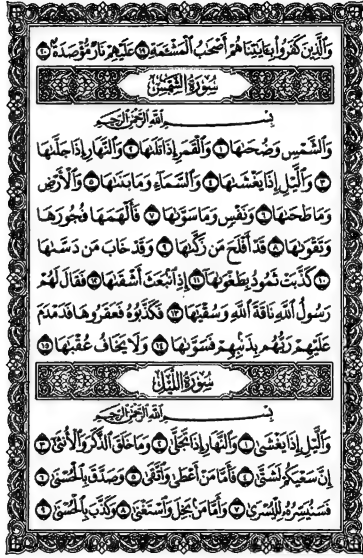 وَالَّذِينَ كَفَرُوا بِآيَاتِنَا هُمْ أَصْحَابُ الْمَشْأَمَةِ ١٩ عَلَيْهِمْ نَارٌ مُّؤْصَدَةٌ ٢٠
سُورَةُ الشَّمْسِ
بِسْمِ اللَّهِ الرَّحْمَٰنِ الرَّحِيمِ
وَالشَّمْسِ وَضُحَىٰهَا ١ وَالْقَمَرِ إِذَا تَلَىٰهَا ٢ وَالنَّهَارِ إِذَا جَلَّىٰهَا
٣ وَالَّيْلِ إِذَا يَغْشَىٰهَا ٤ وَالسَّمَآءِ وَمَا بَنَىٰهَا ٥ وَالْأَرْضِ
وَمَا طَحَىٰهَا ٦ وَنَفْسٍ وَمَا سَوَّىٰهَا ٧ فَأَلْهَمَهَا فُجُورَهَا
وَتَقْوَىٰهَا ٨ قَدْ أَفْلَحَ مَن زَكَّىٰهَا ٩ وَقَدْ خَابَ مَن دَسَّىٰهَا
١٠ كَذَّبَتْ ثَمُودُ بِطَغْوَىٰهَا ١١ إِذِ انۢبَعَثَ أَشْقَىٰهَا ١٢ فَقَالَ لَهُمْ
رَسُولُ اللَّهِ نَاقَةَ اللَّهِ وَسُقْيَٰهَا ١٣ فَكَذَّبُوهُ فَعَقَرُوهَا فَدَمْدَمَ
عَلَيْهِمْ رَبُّهُم بِذَنۢبِهِمْ فَسَوَّىٰهَا ١٤ وَلَا يَخَافُ عُقْبَٰهَا ١٥
سُورَةُ اللَّيْلِ
بِسْمِ اللَّهِ الرَّحْمَٰنِ الرَّحِيمِ
وَالَّيْلِ إِذَا يَغْشَىٰ ١ وَالنَّهَارِ إِذَا تَجَلَّىٰ ٢ وَمَا خَلَقَ الذَّكَرَ وَالْأُنثَىٰ ٣
إِنَّ سَعْيَكُمْ لَشَتَّىٰ ٤ فَأَمَّا مَنْ أَعْطَىٰ وَاتَّقَىٰ ٥ وَصَدَّقَ بِالْحُسْنَىٰ ٦
فَسَنُيَسِّرُهُ لِلْيُسْرَىٰ ٧ وَأَمَّا مَنۢ بَخِلَ وَاسْتَغْنَىٰ ٨ وَكَذَّبَ بِالْحُسْنَىٰ ٩